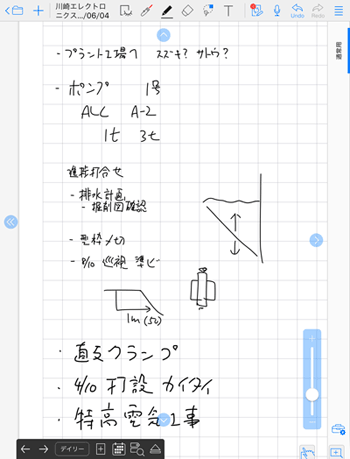 川崎エレクトロ
ニクス.../06/04
Undo
Redo
通常用
・プラント工場へ スズキ? サトウ?
・ポンプ 1号
ALC A-2
1t 3t
進捗打合せ
・排水計画
・掘削図確認
・型枠〆切
・8/10 巡視 準ビ
1m (50)
・直交クランプ
・4/10 打設 カイタイ
・特高電気工事
デイリー